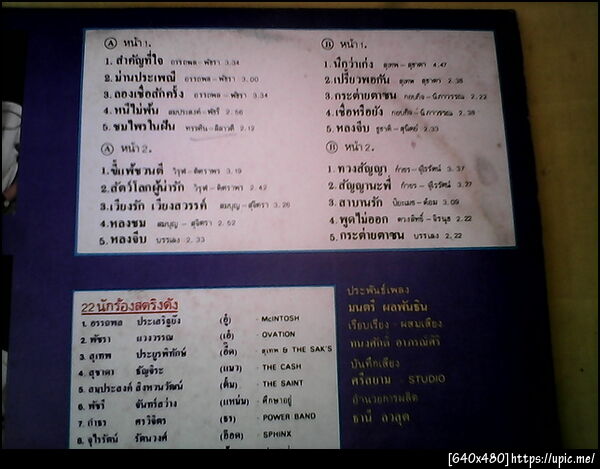 Ⓐ หน้า 1.
1. สำคัญที่ใจ อรรถพล - พัชรา 3.34
2. ม่านประเพณี อรรถพล - พัชรา 3.00
3. ลองเชื่อสักครั้ง อรรถพล - พัชรา 3.34
4. หนีไม่พ้น สมประสงค์ - พัชรี 2.56
5. ชมไพรในฝัน ลีลาวดี 2.12
Ⓐ หน้า 2.
1. ขี้แพ้ชวนตี วิรุฬ - ดิศราพร 3.19
2. สัตว์โลกผู้น่ารัก วิรุฬ - ดิศราพร 2.42
3. เวียงรัก เวียงสวรรค์ สมบุญ - สุจิตรา 3.26
4. หลงชม สมบุญ - สุจิตรา 2.52
5. หลงจีบ บรรเลง 2.33
Ⓑ หน้า 1.
1. นึกว่าเก่ง สุเทพ - สุชาดา 4.47
2. เปรี้ยวพอกัน สุเทพ สุชาดา 2.38
3. กระต่ายตาชน กอบกิจ - 2.22
4. เชื่อหรือยัง กอบกิจ - 2.38
5. หลงจีบ 2.33
Ⓑ หน้า 2.
1. ทวงสัญญา กำธร - จุไรรัตน์ 3.37
2. สัญญานะพี่ กำธร - จุไรรัตน์ 3.27
3. สาบานรัก นิยะเมธ - ต้อม 3.09
4. พูดไม่ออก ดวงสิทธิ์ - จิรนุช 2.22
5. กระต่ายตาชน บรรเลง 2.22
22 นักร้องสตริงดัง
1. อรรถพล ประเสริฐยิ่ง (อู๋) - McINTOSH
2. พัชรา แวงวรรณ (เอ๋) - OVATION
3. สุเทพ ประยูรพิทักษ์ (อี๊ด) - สุเทพ & THE SAK'S
4. สุชาดา ธัญจิระ (แมว) - THE CASH
5. สมประสงค์ สิงหวนวัฒน์ (ตั้ม) - THE SAINT
6. พัชรี จันทร์สว่าง (แหม่ม) - ศึกษาอยู่
7. กำธร ศรวิจิตร (ธร) - POWER BAND
8. จุไรรัตน์ รัตนวงศ์ (อ๊อด) - SPHINX
ประพันธ์เพลง
มนตรี ผลพันธิน
เรียบเรียง - ผสมเสียง
ทนงศักดิ์ อาภรณ์ศิริ
บันทึกเสียง
ศรีสยาม - STUDIO
อำนวยการผลิต
ธานี ลวสุต
[640x480]https://upic.me/